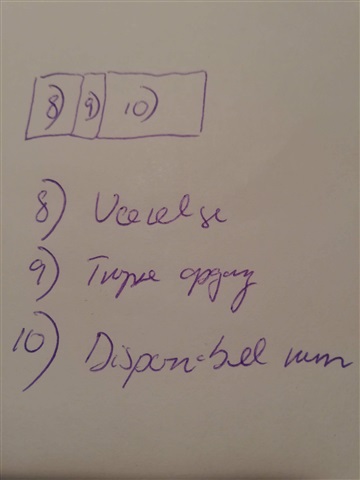 8) 9) 10)
8) Værelse
9) Trappe opgang
10) Disponibelt rum